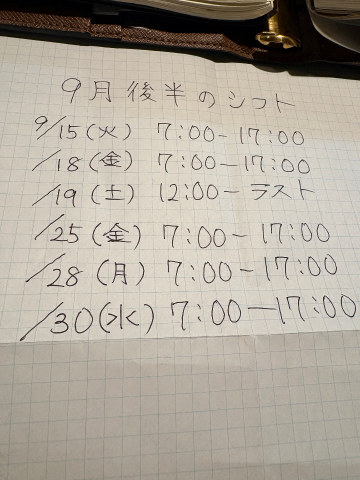 9月後半のシフト
9/15(火) 7:00-17:00
/18(金) 7:00-17:00
/19(土) 12:00-ラスト
/25(金) 7:00-17:00
/28(月) 7:00-17:00
/30(水) 7:00-17:00